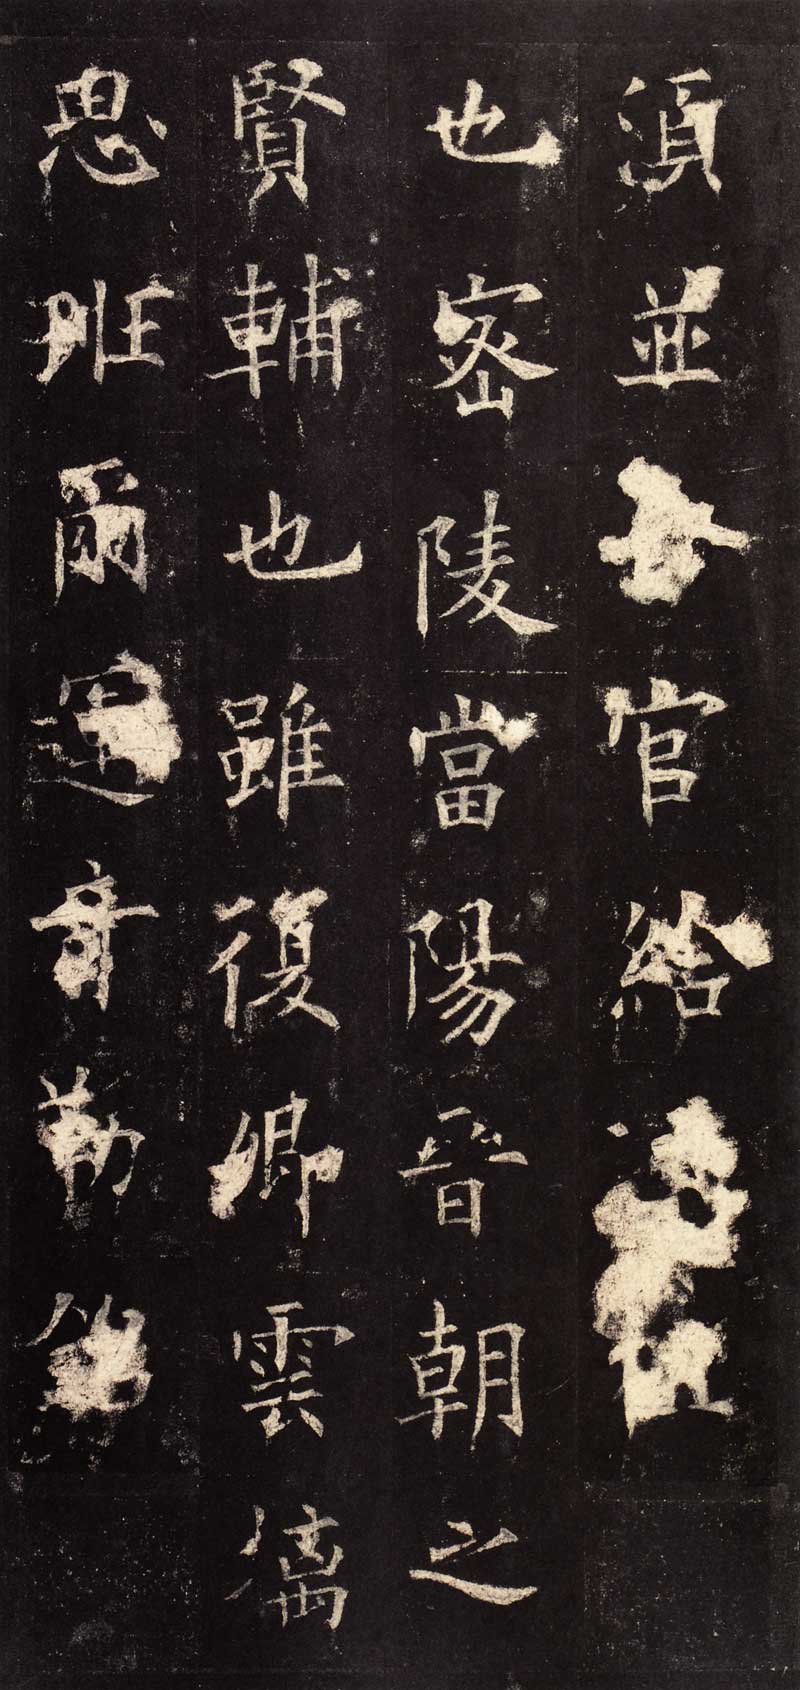 須並官給
也密陵當陽晉朝之
賢輔也雖復卿雲摛
思班爾運奇勒銘